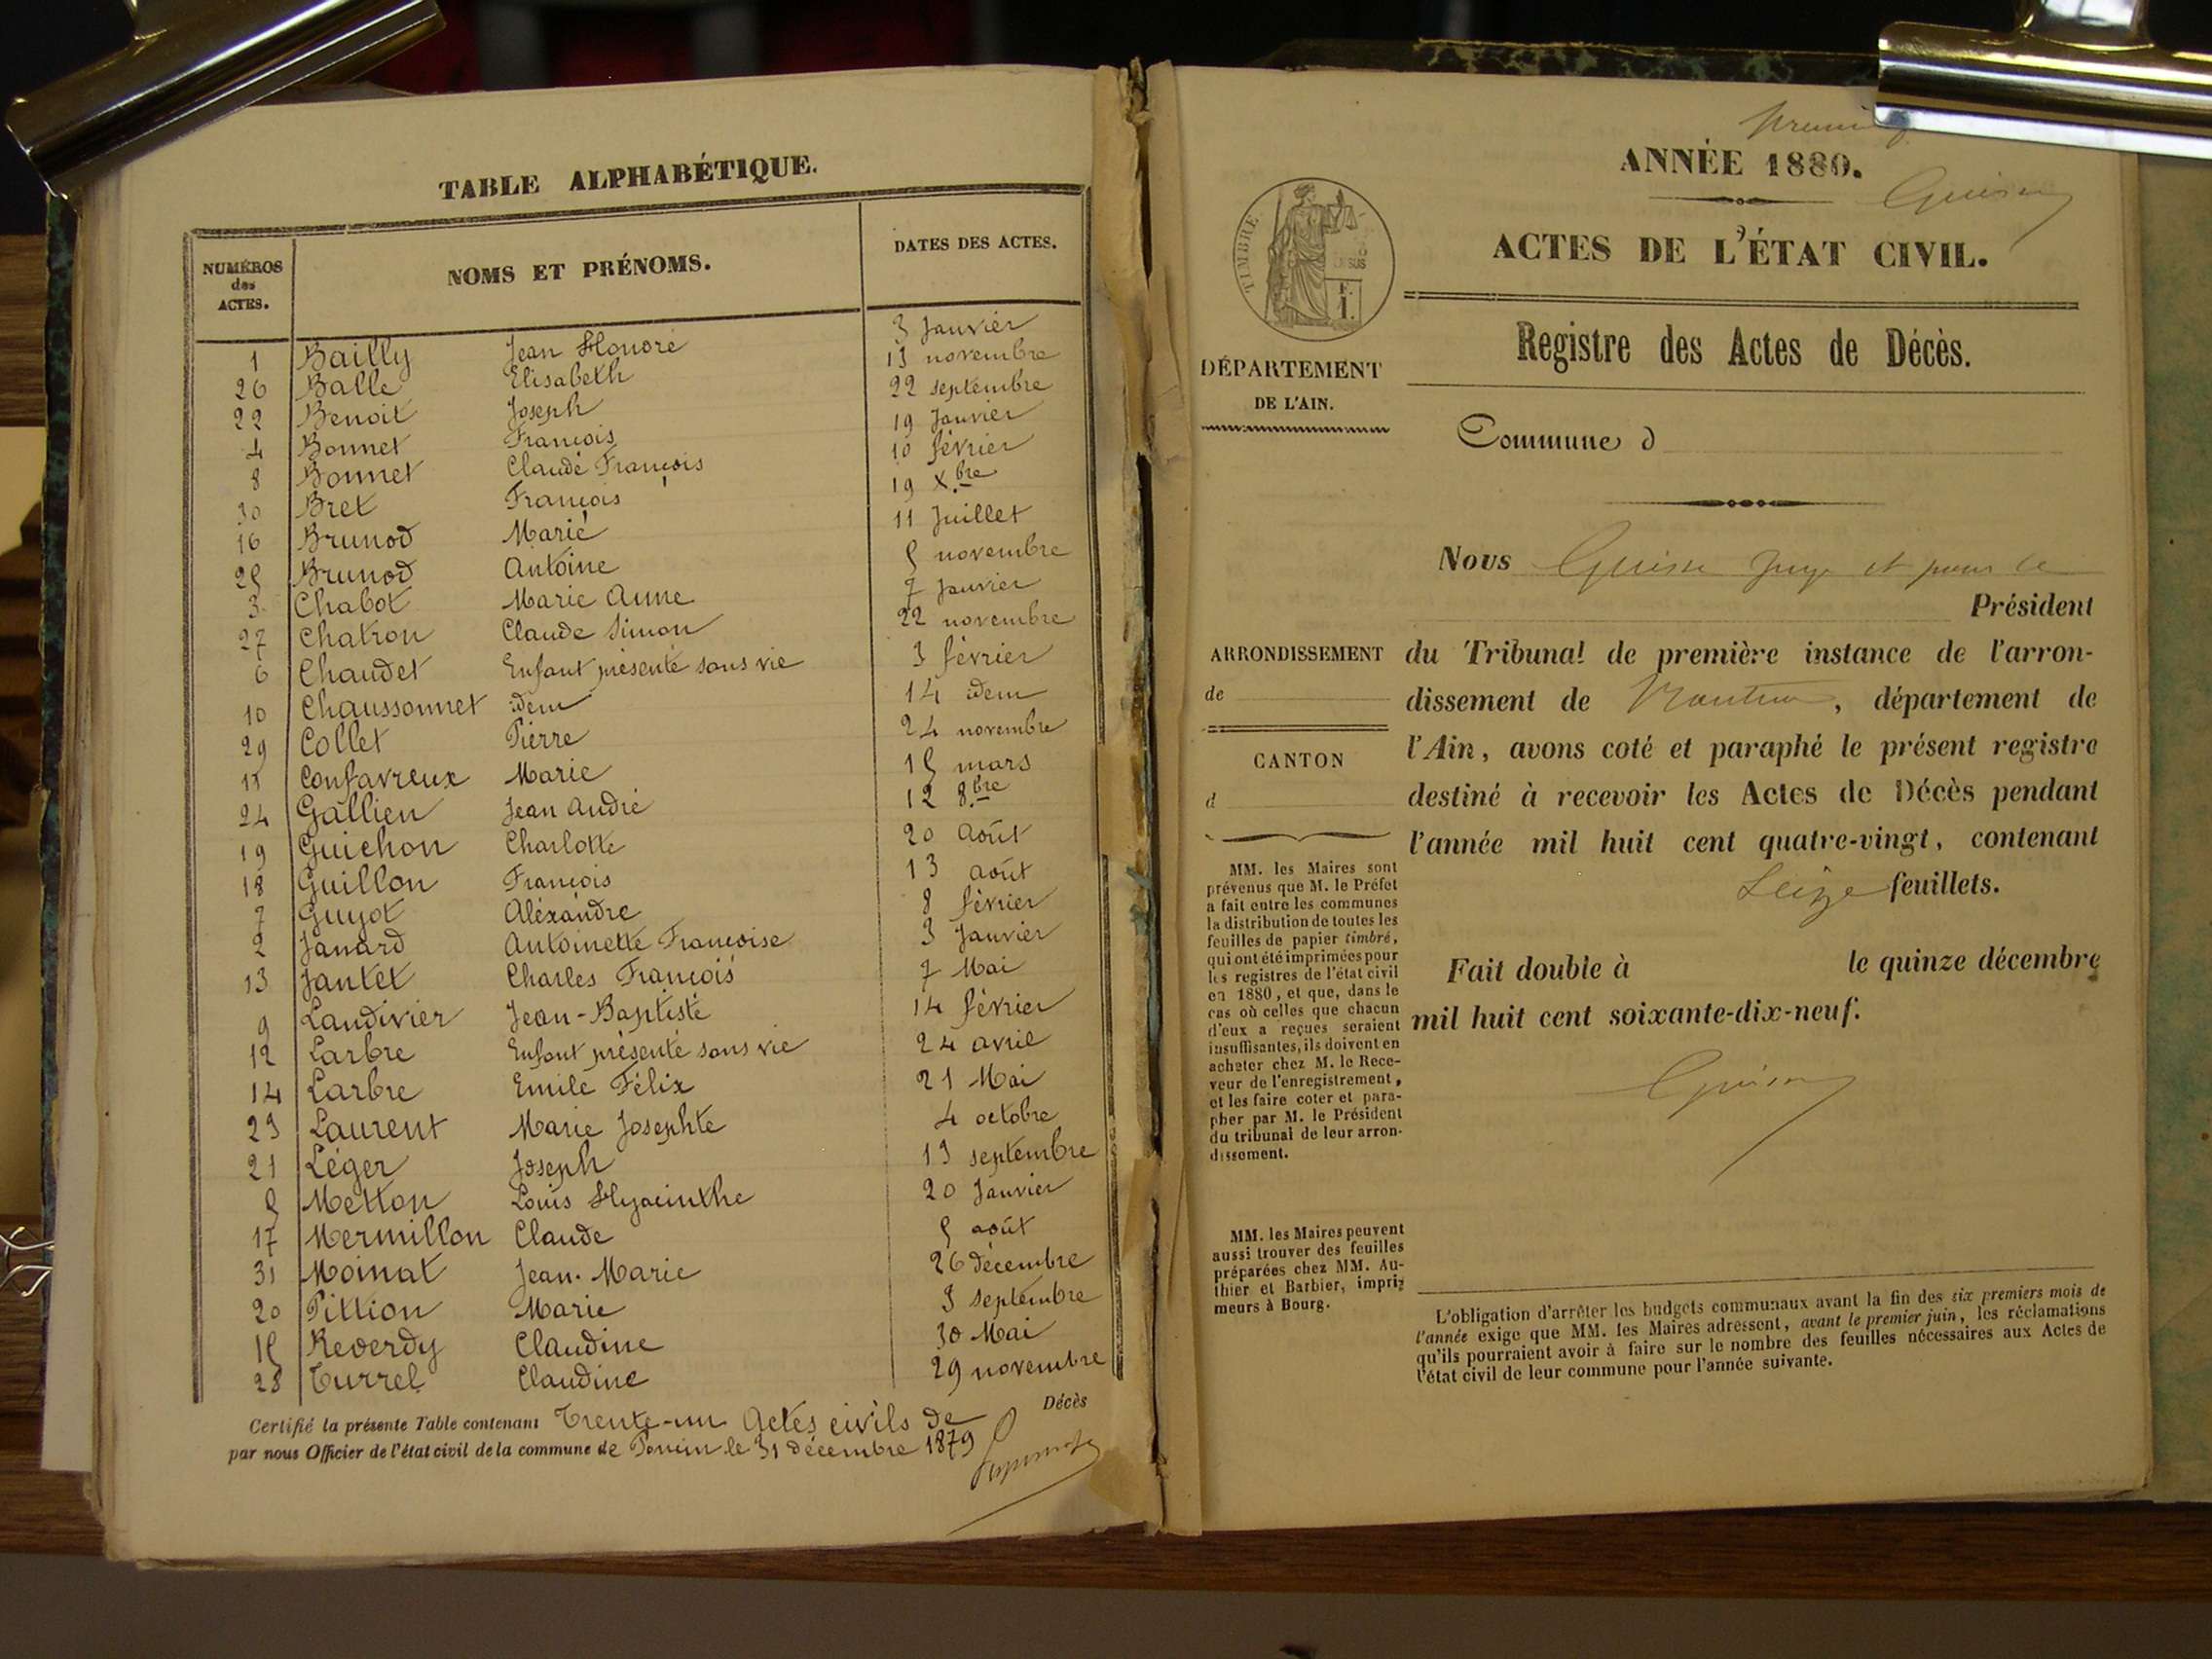 TABLE ALPHABÉTIQUE.
NUMÉROS des ACTES. NOMS ET PRÉNOMS. DATES DES ACTES.
1 Bailly Jean Honoré 3 Janvier
26 Balle Elisabeth 13 novembre
22 Benoit Joseph 22 septembre
4 Bonnet François 19 Janvier
8 Bonnet Claude François 10 février
30 Bret François 19 Xbre
16 Brunod Marie 11 Juillet
25 Brunod Antoine 5 novembre
3 Chabot Marie Anne 7 Janvier
27 Chatron Claude Simon 22 novembre
6 Chaudet Enfant présenté sans vie 3 février
10 Chaussonnet idem 14 idem
29 Collet Pierre 24 novembre
11 Confavreux Marie 15 mars
24 Gallien Jean André 12 8bre
19 Guichon Charlotte 20 Août
18 Guillon François 13 août
7 Guyot Aléxandre 8 février
2 Janard Antoinette Françoise 3 Janvier
13 Jantet Charles François 7 Mai
9 Landivier Jean-Baptiste 14 février
12 Larbre Enfant présenté sans vie 24 avril
14 Larbre Emile Félix 21 Mai
23 Laurent Marie Josephte 4 octobre
21 Léger Joseph 13 septembre
5 Metton Louis Hyacinthe 20 Janvier
17 Mermillon Claude 5 août
31 Moinat Jean-Marie 26 décembre
20 Pittion Marie 3 septembre
15 Reverdy Claudine 30 Mai
28 Turrel Claudine 29 novembre
Certifié la présente Table contenant Trente-un Actes civils de Décès
par nous Officier de l'état civil de la commune de Poncin le 31 décembre 1879
ANNÉE 1880.
ACTES DE L'ÉTAT CIVIL.
Registre des Actes de Décès.
TIMBRE
1 F.
DÉPARTEMENT
DE L'AIN.
Commune d
Nous Guison Juge et pour le
Président
ARRONDISSEMENT
de
CANTON
d
du Tribunal de première instance de l'arron-
dissement de Nantua, département de
l'Ain, avons coté et paraphé le présent registre
destiné à recevoir les Actes de Décès pendant
l'année mil huit cent quatre-vingt, contenant
Seize feuillets.
Fait double à le quinze décembre
mil huit cent soixante-dix-neuf.
MM. les Maires sont
prévenus que M. le Préfet
a fait entre les communes
la distribution de toutes les
feuilles de papier timbré,
qui ont été imprimées pour
les registres de l'état civil
en 1880, et que, dans le
cas où celles que chacun
d'eux a reçues seraient
insuffisantes, ils doivent en
acheter chez M. le Rece-
veur de l'enregistrement,
et les faire coter et para-
pher par M. le Président
du tribunal de leur arron-
dissement.
MM. les Maires peuvent
aussi trouver des feuilles
préparées chez MM. Au-
thier et Barbier, impri-
meurs à Bourg.
L'obligation d'arrêter les budgets communaux avant la fin des six premiers mois de
l'année exige que MM. les Maires adressent, avant le premier juin, les réclamations
qu'ils pourraient avoir à faire sur le nombre des feuilles nécessaires aux Actes de
l'état civil de leur commune pour l'année suivante.